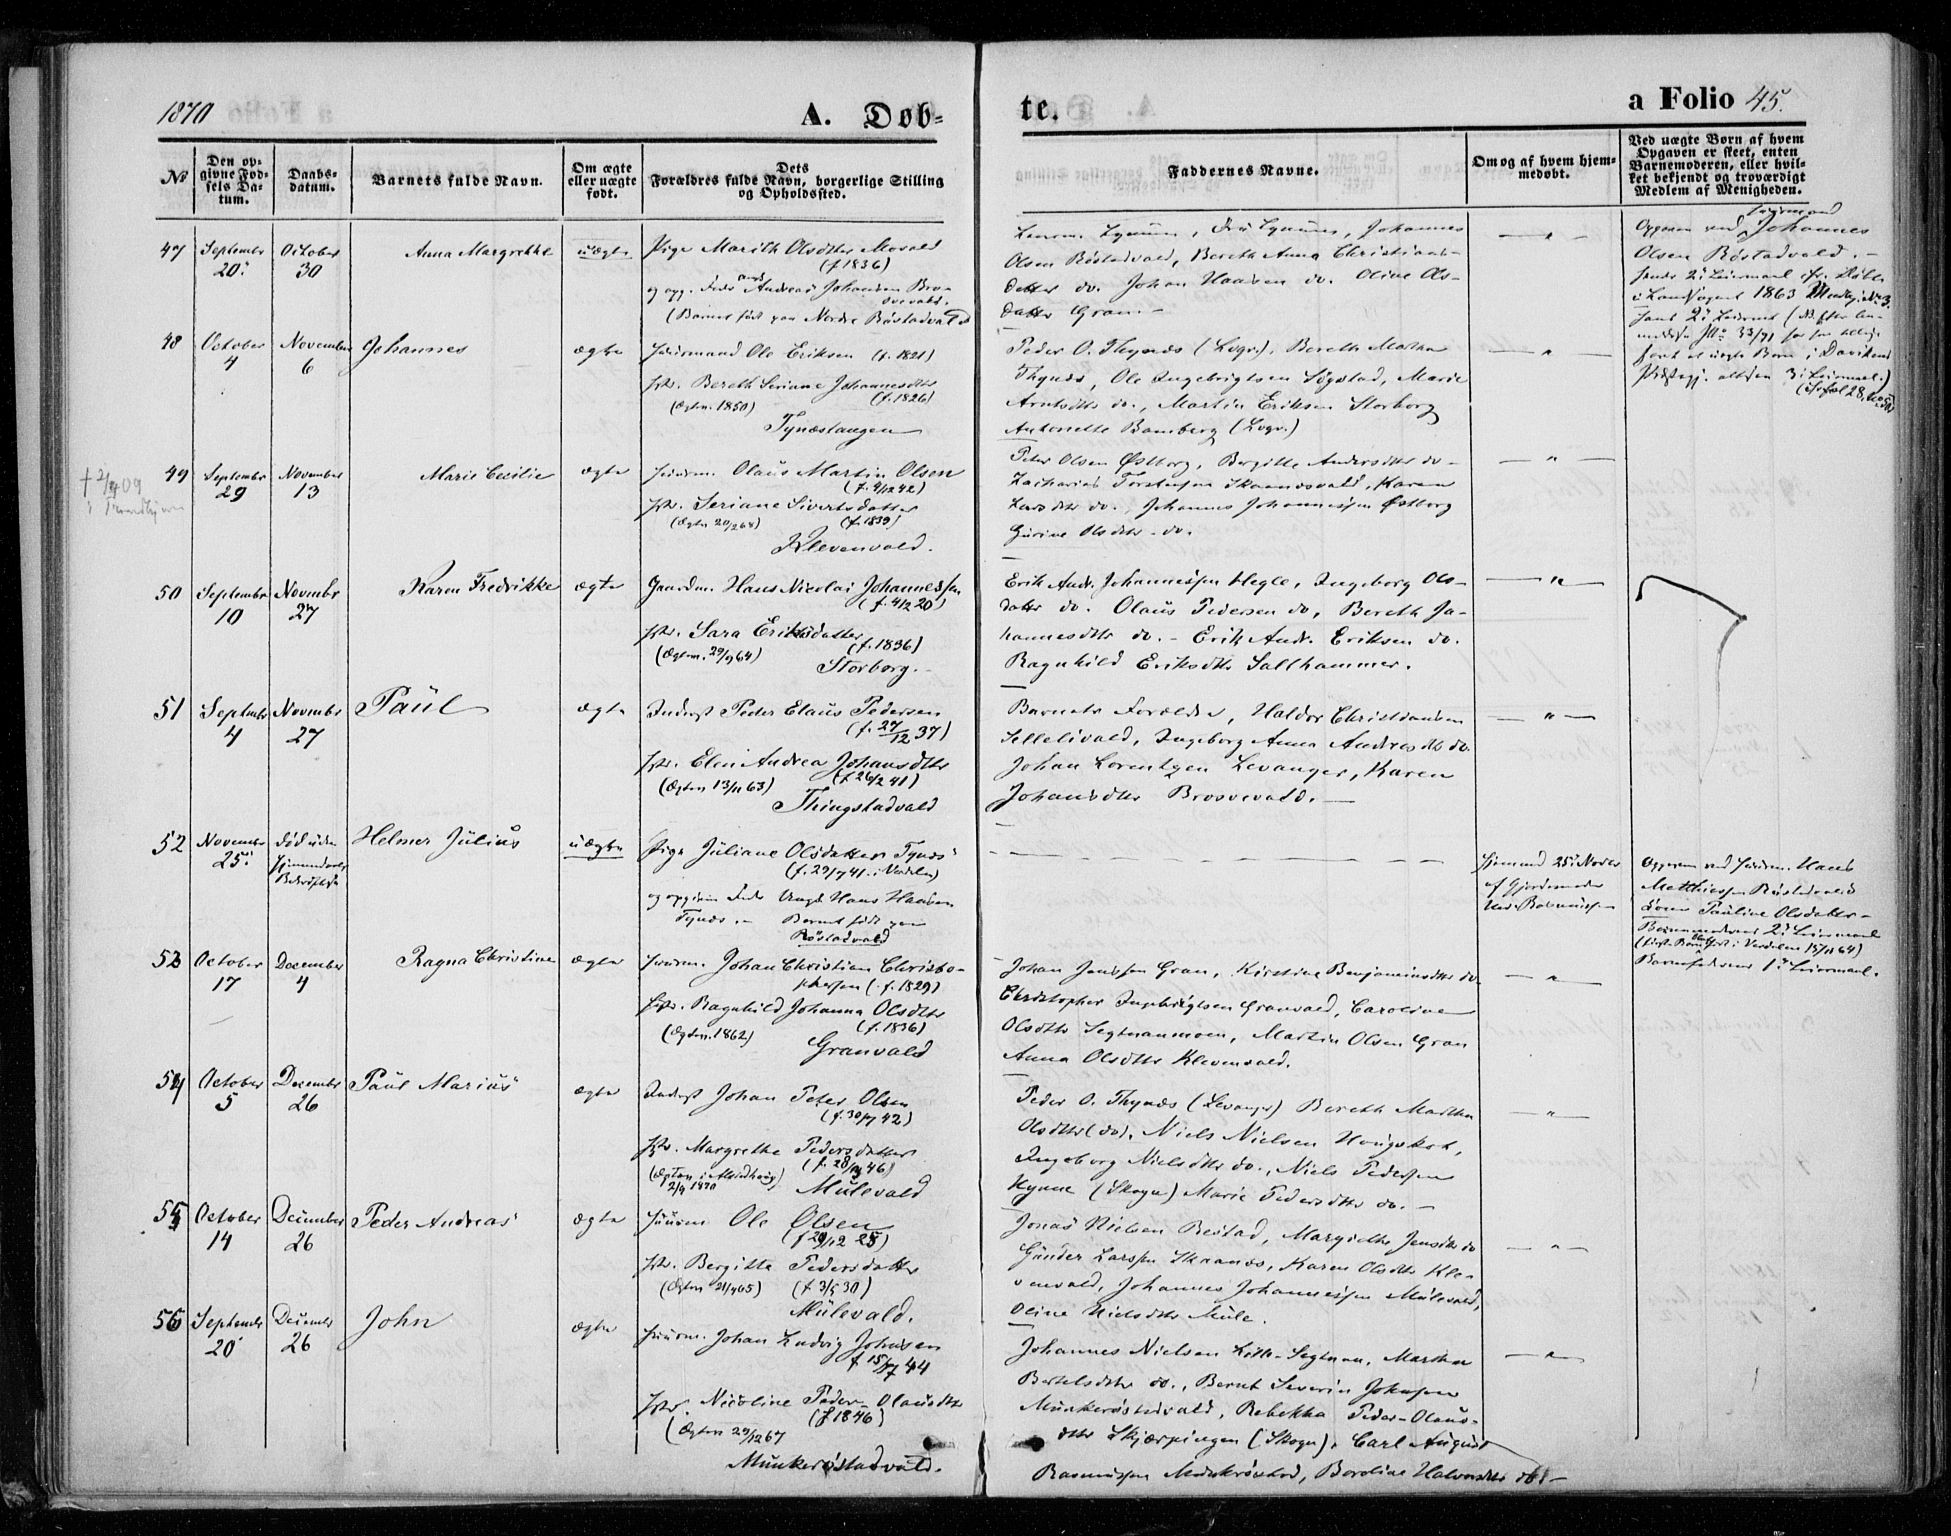 1870
A. Døb-
te.
a Folio 45.
No
Den op-
givne Fød-
sels Da-
tum.
Daabs-
datum.
Barnets fulde Navn.
Om ægte
eller uægte
født.
Dets
Forældres fulde Navn, borgerlige Stilling
og Opholdssted.
Faddernes Navne.
Om og af hvem hjem-
medøbt.
Ved uægte Børn af hvem
Opgaven er skeet, enten
Barnemoderen, eller hvil-
ket bekjendt og troværdigt
Medlem af Menigheden.
47 September October Anna Margrethe uægte Pige Marith Olsdtter Movald
20. 30 (f. 1836)
og opg. Fader Andreas Johansen Bros-
vevald.
(Barnet født paa Nordre Røstadvald
Olsen Røstadvald, Bereth Anna Christians-
datter do. Johan Haasen do. Oline Ols-
datter Gran. -
Johannes
Olsen Røstadvald. -
48 October November Johannes ægte Huusmand Ole Eriksen (f. 1821)
4 6
Bereth Seriane Johannesdtr
(f. 1826)
(Ægtev. 1850)
Tynæstangen
Peder O. Thynæs (Levgr.), Bereth Martha
Thynæs, Ole Ingebrigtsen Søgstad, Marie
Arntsdtr do., Martin Eriksen Storborg
Antonette Bamberg (Levgr.)
49 September November Marie Cecilie ægte Huusm. Olaus Martin Olsen
29 13 (f. 4/12 42)
Seriane Sivertsdatter
(f. 1839)
Klevenvald.
Peter Olsen Østborg, Bergitte Andersdtr do -
Zacharias Torstensen Skaanesvald, Karen
Larsdtr do., Johannes Johannessen Østborg
Gurine Olsdtr do.
50 September November Karen Fredrikke ægte Gaardm. Hans Nicolai Johannessen
10 27 (f. 4/2 20)
Sara Eriksdatter
(f. 1836)
(Ægtev. 29/9 64)
Storborg. -
Erik Andr. Johannessen Hegle, Ingeborg Ols-
datter do. Olaus Pedersen do, Bereth Jo-
hannesdtr do. - Erik Andr. Eriksen do.
Ragnhild Eriksdtr Salthammer.
51 September November Paul ægte Inderst Peder Elaus Pedersen
4 27 (f. 27/12 37)
Elen Andrea Johansdtr
(f. 26/2 41)
(Ægtev 13/11 63)
Thingstadvald
Barnets Forældre, Haldor Christiansen
Sellelivald, Ingeborg Anna Andreasdtr do.
Johan Lorentzen Levanger, Karen
Johansdtr Brosvevald. -
52 November død uden Helmer Julius uægte Pige Juliane Olsdatter Tynæs
25. (f. 29/7 41 i Værdalen)
og opgiven Fader Ungk Hans Haasen
Tynæs. - Barnet født paa
Røstadvald
hjemmed 25 i Novbr
af Gjordemoder
Opgaven ved Huusm. Hans
Matthiessen Røstadvald
Pauline Olsdatter -
53 October December Ragna Christine ægte Huusm. Johan Christian Christo-
17 4 phersen (f. 1829)
Ragnhild Johanna Olsdtr
(f. 1836)
(Ægtev. 1862)
Granvald
Johan Jenssen Gran, Kirstine Benjaminsdtr do
Christopher Ingebrigtsen Granvald, Caroline
Olsdtr Segtnanmoen, Martin Olsen Gran
Anna Olsdtr Klevenvald.
54 October December Paul Marius ægte Inderst Johan Peter Olsen
5 26 (f. 30/7 42)
Margrethe Pedersdatter
2/4 1870
Mulevald
Peder O. Thynæs (Levanger) Bereth Martha
Olsdtr (do), Niels Nielsen Hougskot,
Ingeborg Nielsdtr do., Niels Pedersen
Hynne (Skogn) Marie Pedersdtr do. -
55 October December Peder Andreas ægte Huusm Ole Olsen
14 26 (f 29/12 25)
Bergitte Pedersdatter
(f 3/5 30)
Mulevald.
Jonas Nielsen Restad, Margrethe Jensdtr do
Gunder Larssen Skaanes, Karen Olsdtr Kle-
venvald, Johannes Johannessen Mulevald,
Oline Nielsdtr Mule.
56 September December John ægte Huusm. Johan Ludvig Johnsen
20 26 f 15/7 44
Nicoline Peder-Olausdtr
(f 1846)
(Ægtev 29/12 67
Munkerøstadvald.
Johannes Nielsen Lille-Segtnan, Martha
Bertelsdtr do., Bernt Severin Johnsen
Munkerøstadvald, Rebekka Peder-Olaus-
dtr Skjærpingen (Skogn), Carl August
Rasmussen Munkrøstad, Boroline Halvorsdtr do -